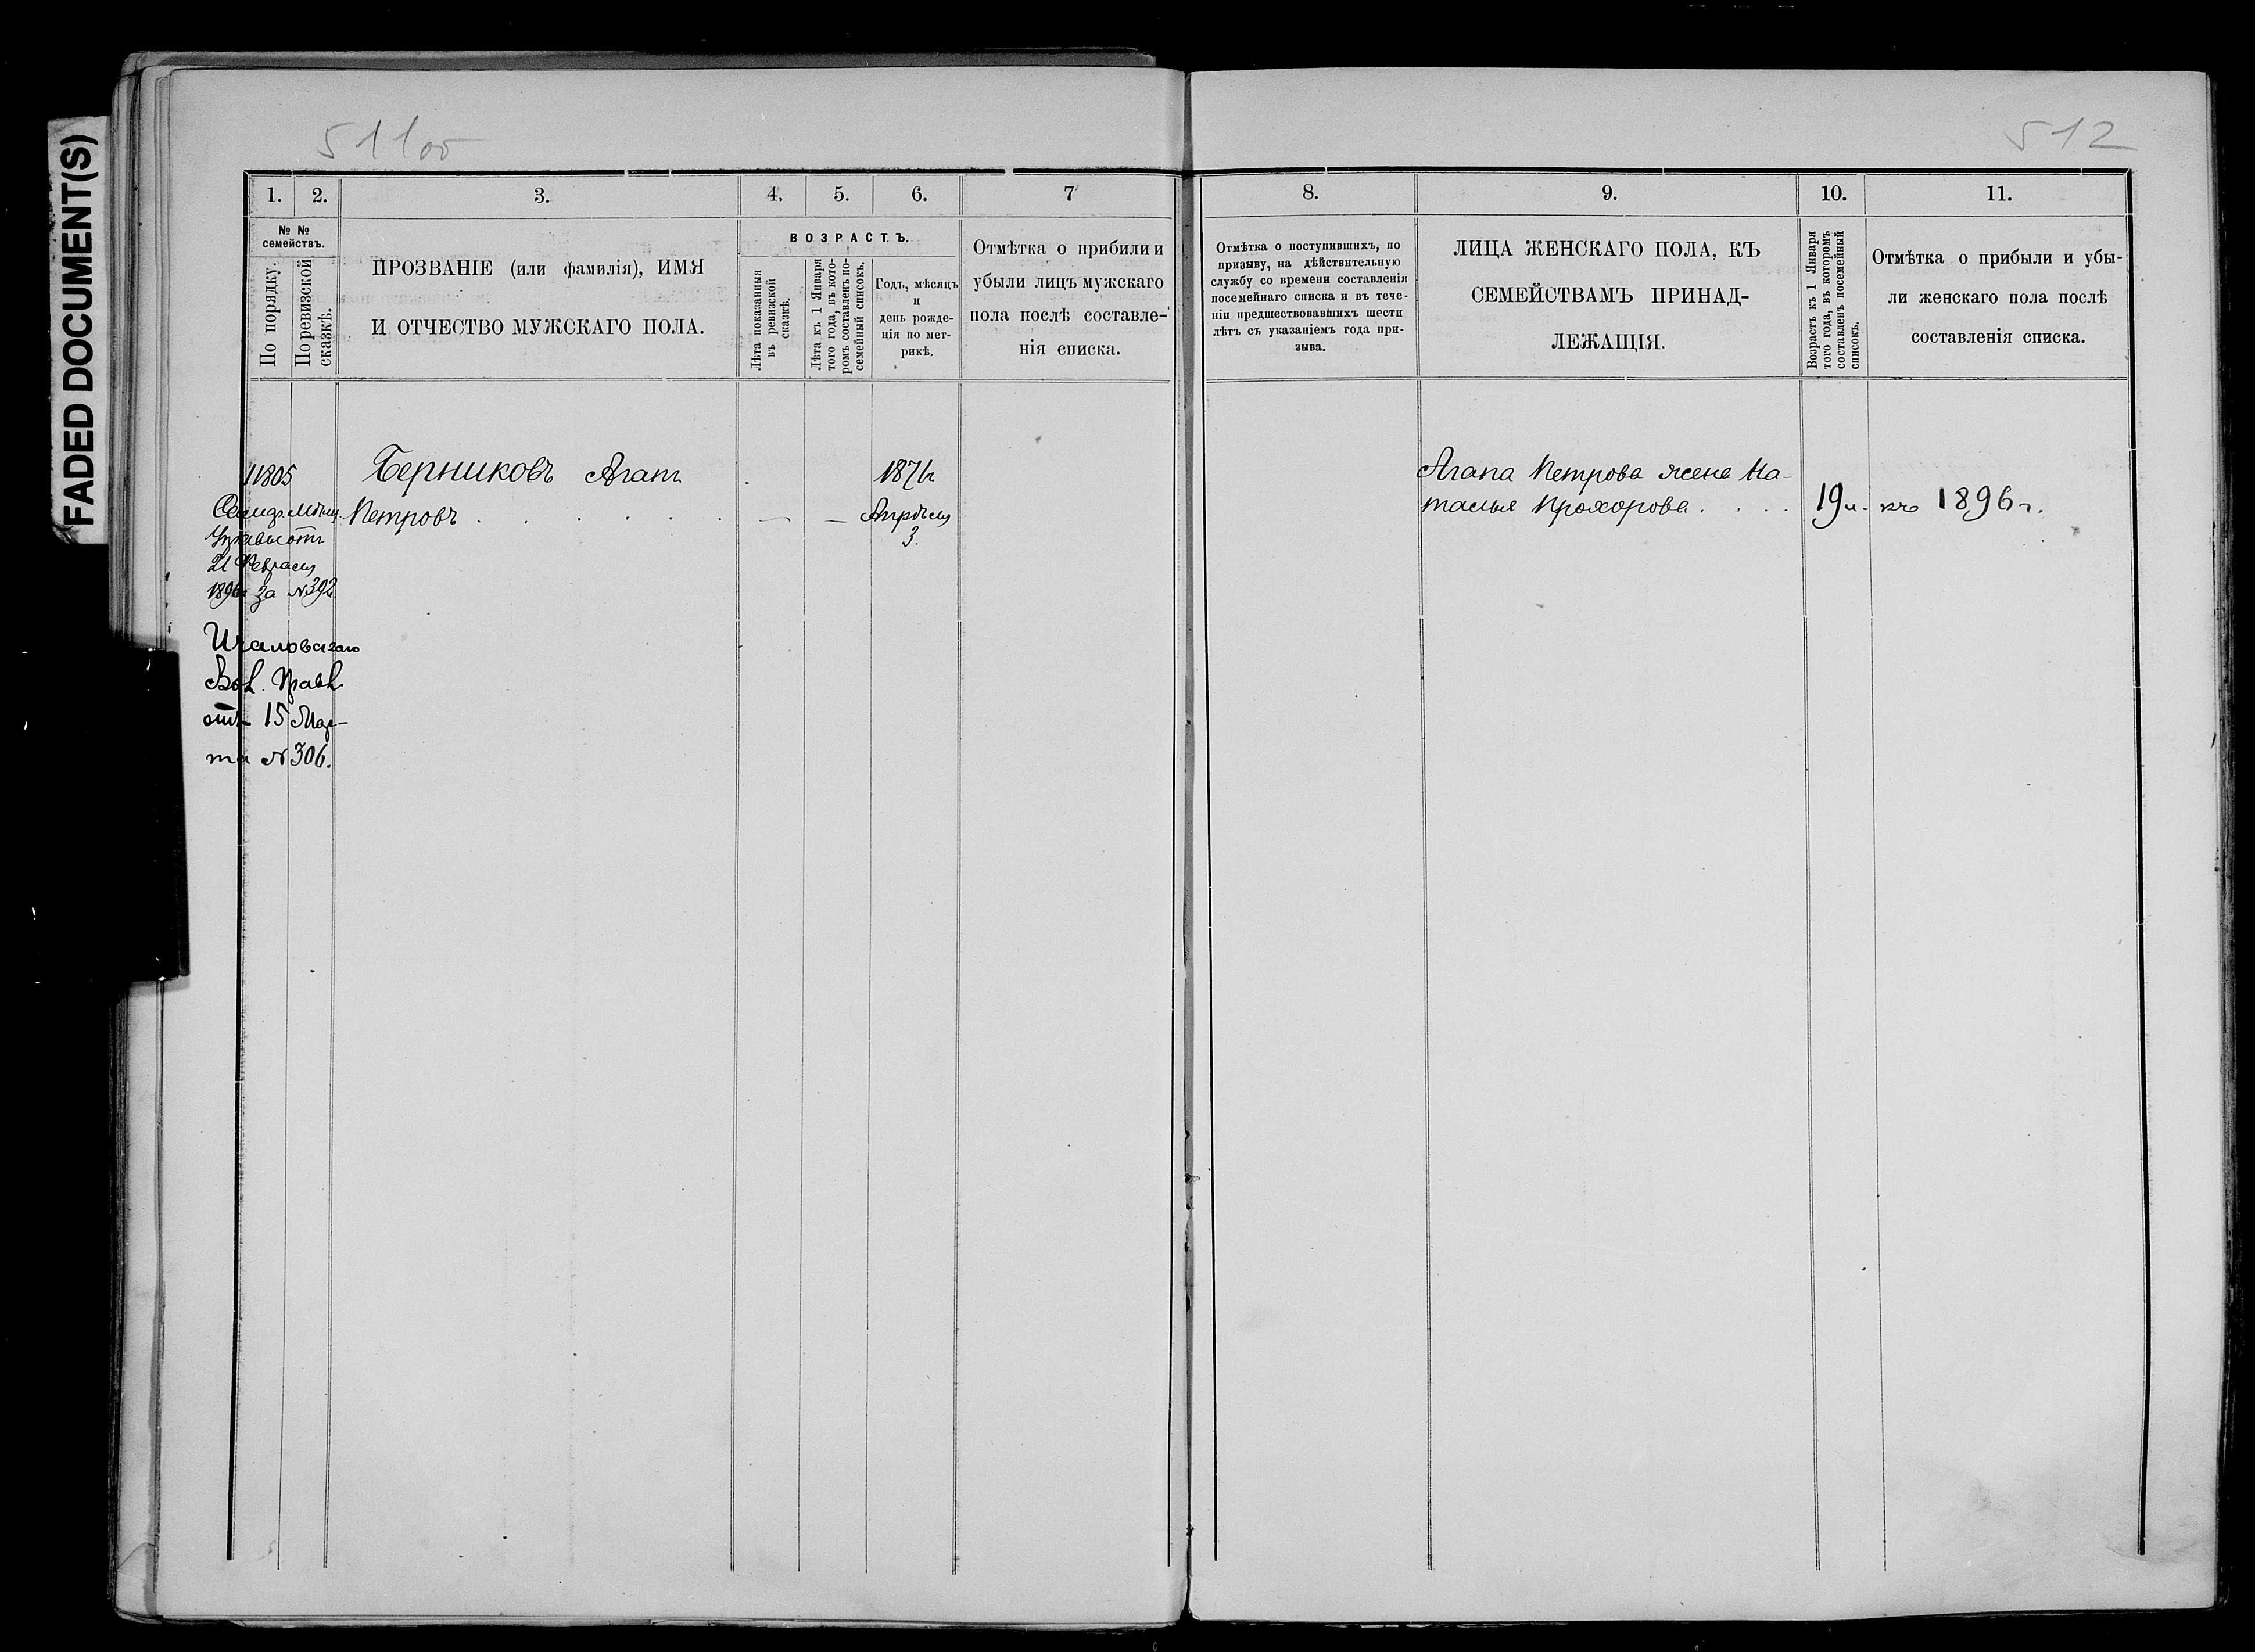 FADED DOCUMENT(S)
511об
512
1. 2. 3. 4. 5. 6. 7
№ №
семействъ.
По порядку.
По ревизской
сказкѣ.
ПРОЗВАНІЕ (или фамилія), ИМЯ
И ОТЧЕСТВО МУЖСКАГО ПОЛА.
ВОЗРАСТЪ.
Лѣта показанныя
въ ревизской
сказкѣ.
Лѣта къ 1 Января
того года, въ кото-
ромъ составленъ по-
семейный списокъ.
Годъ, мѣсяцъ
и
день рожде-
нія по мет-
рикѣ.
Отмѣтка о прибыли и
убыли лицъ мужскаго
пола послѣ составле-
нія списка.
8. 9. 10. 11.
Отмѣтка о поступившихъ, по
призыву, на дѣйствительную
службу со времени составленія
посемейнаго списка и въ тече-
ніи предшествовавшихъ шести
лѣтъ съ указаніемъ года при-
зыва.
ЛИЦА ЖЕНСКАГО ПОЛА, КЪ
СЕМЕЙСТВАМЪ ПРИНАД-
ЛЕЖАЩІЯ.
Возрастъ къ 1 Января
того года, въ которомъ
составленъ посемейный
списокъ.
Отмѣтка о прибыли и убы-
ли женскаго пола послѣ
составленія списка.
11805
отъ
21 Февраля
1896 за №392
Ичаловскаго
Вол. Правл
отъ 15 Мар-
та №306.
Берниковъ Агапъ
Петровъ . . . . . — —
1876
Апрѣля
3.
Агапа Петрова жена На-
талья Прохорова . . . . 19 л. къ 1896 г.